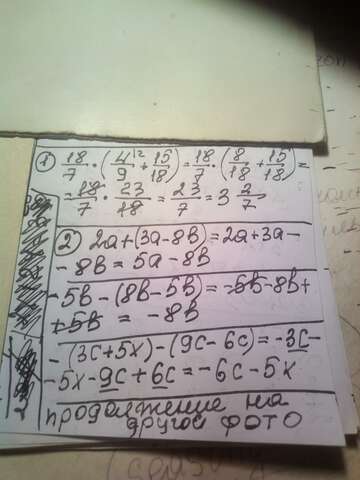 1) 18/7 · (4/9 \2 + 15/18) = 18/7 · (8/18 + 15/18) =
= 18/7 · 23/18 = 23/7 = 3 2/7
2) 2a+(3a-8b)=2a+3a-
-8b=5a-8b
-5b-(8b-5b)=-5b-8b+
+5b = -8b
-(3c+5x)-(9c-6c)=-3c-
-5x-9c+6c=-6c-5x
продолжение на
другой ФОТО